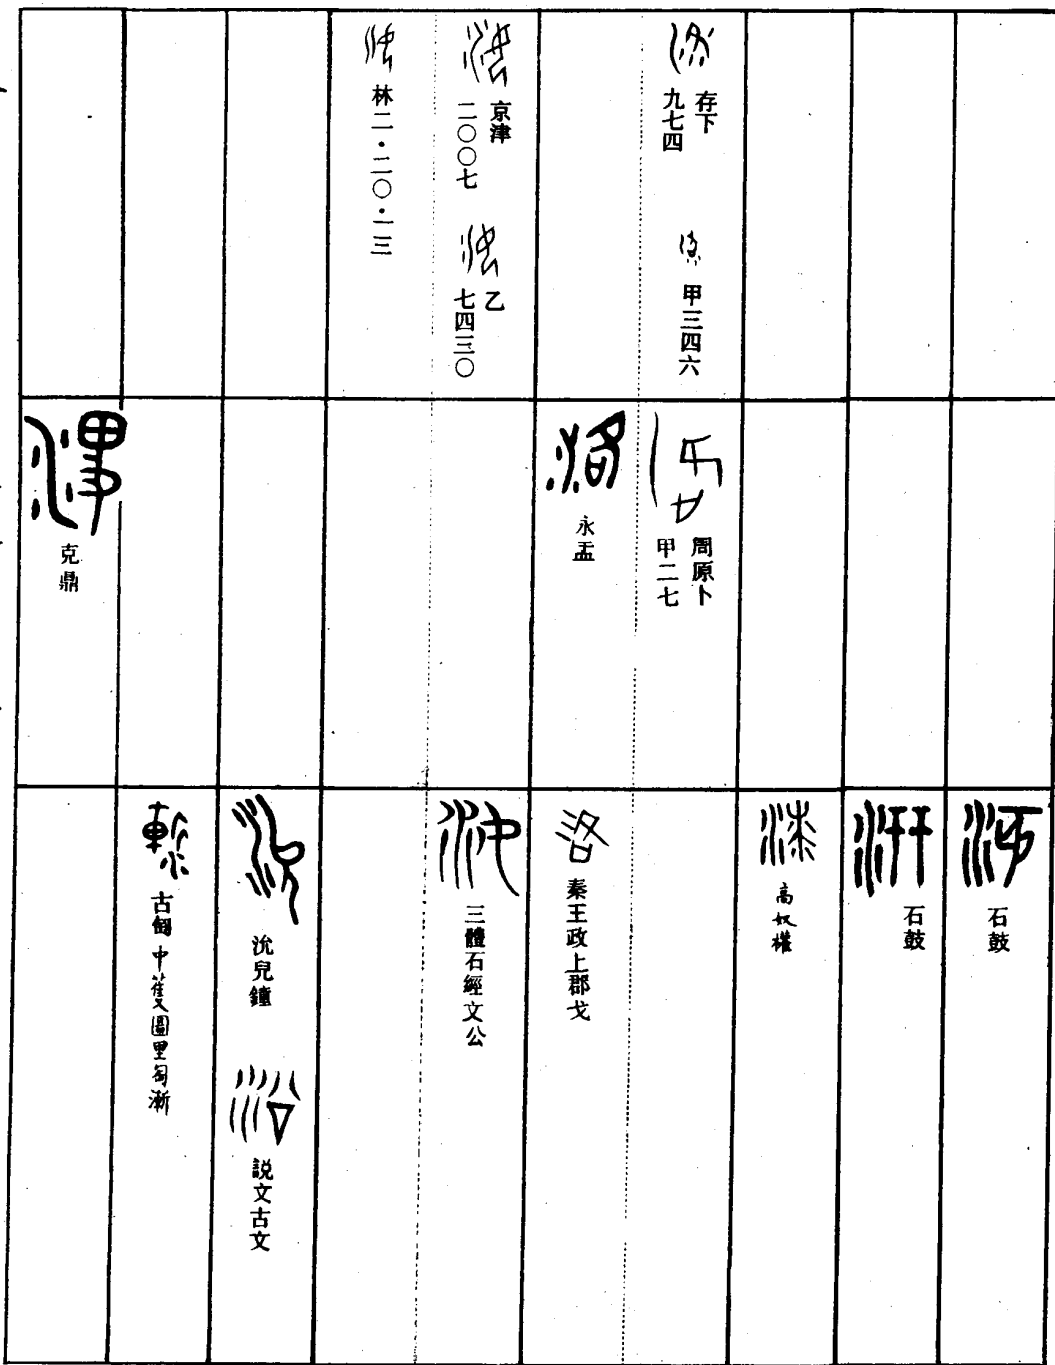 存下
九七四
甲三四六
京津
二〇〇七
乙
七四三〇
林二·二〇·一三
周原卜
甲二七
永盂
克鼎
石鼓
石鼓
高奴權
秦王政上郡戈
三體石經文公
沇兒鐘
説文古文